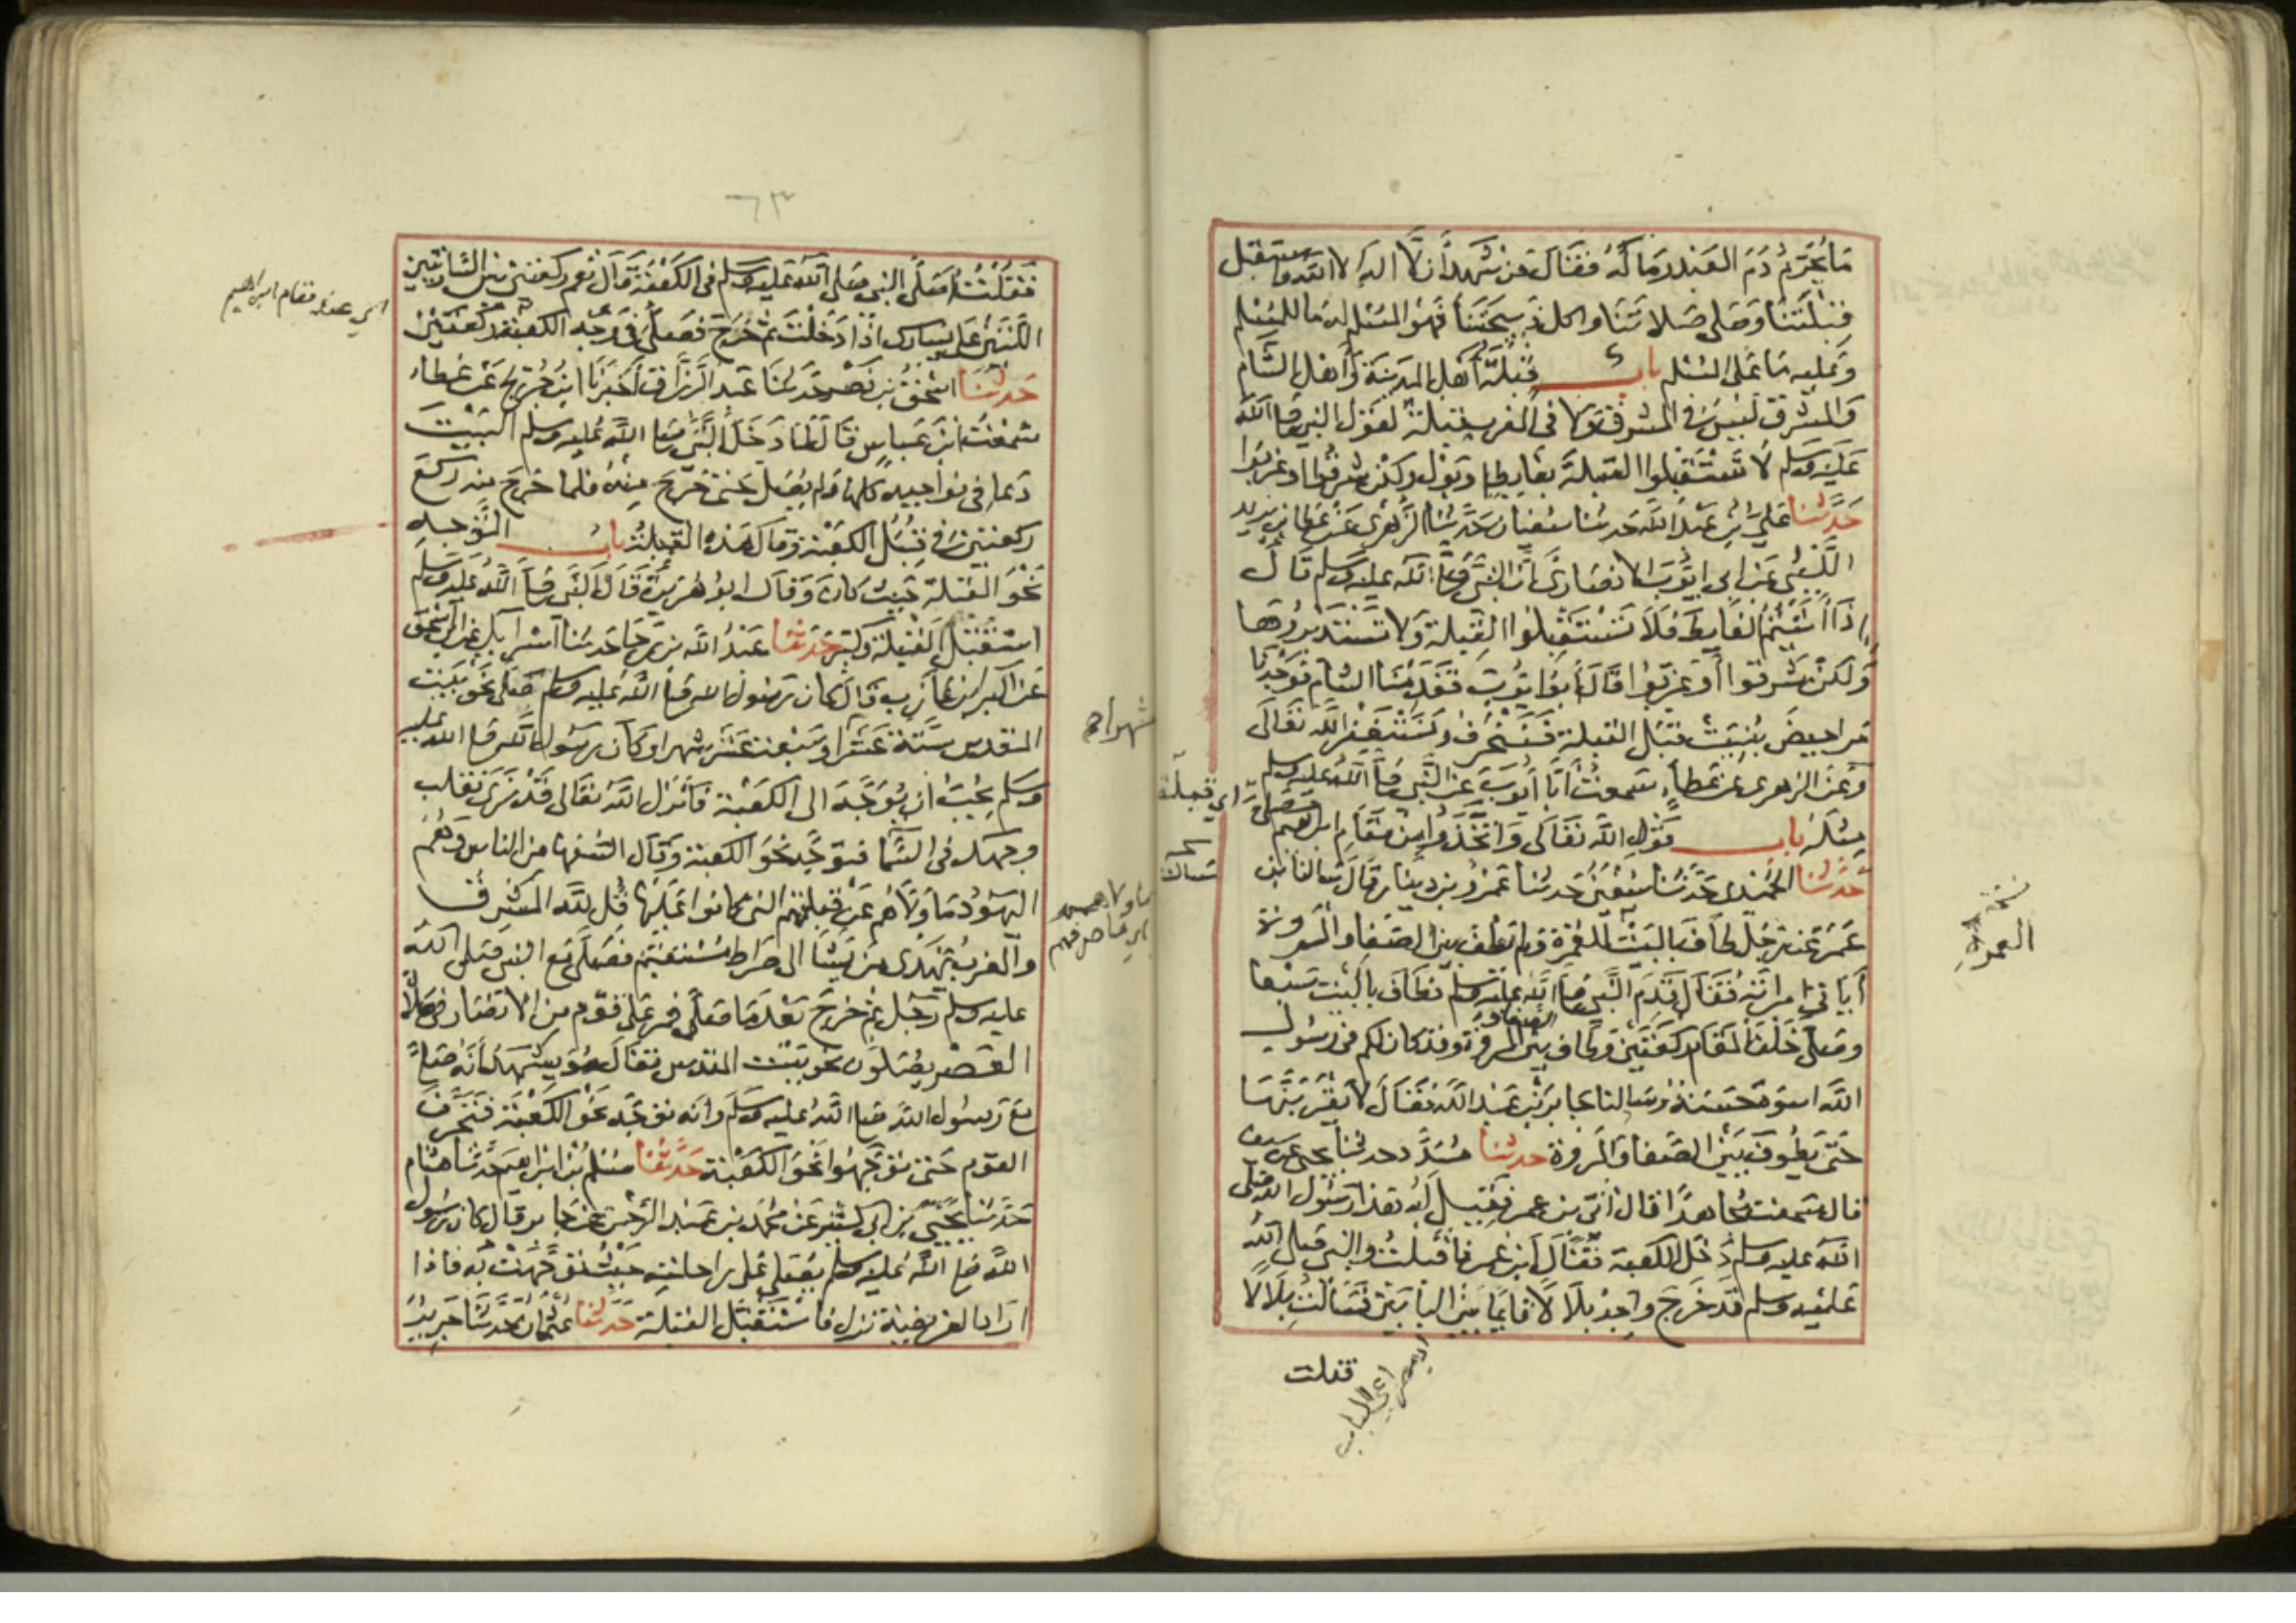 ما يحرم دم العبد وماله فقال من شهد ان لا اله الا الله واستقبل
قبلتنا وصلى صلاتنا واكل ذبيحتنا فهو المسلم له ما للمسلم
وعليه ما على المسلم باب قبلة أهل المدينة وأهل الشام
والمشرق ليس في المشرق ولا في المغرب قبلة لقول النبي صلى الله
عليه وسلم لا تستقبلوا القبلة بغايط او بول ولكن شرقوا او غربوا
حدثنا علي بن عبد الله حدثنا سفيان حدثنا الزهري عن عطا بن يزيد
الليثي عن ابي ايوب الانصاري ان النبي صلى الله عليه وسلم قال
اذا أتيتم الغايط فلا تستقبلوا القبلة ولا تستدبروها
ولكن شرقوا أو غربوا قال أبو ايوب فقدمنا الشام فوجدنا
مراحيض بنيت قبل القبلة فننحرف ونستغفر الله تعالى
وعن الزهري عن عطاء سمعت أبا أيوب عن النبي صلى الله عليه وسلم
مثله باب قول الله تعالى واتخذوا من مقام ابراهيم مصلى
حدثنا الحميدي حدثنا سفين حدثنا عمرو بن دينار قال سالنا ابن
عمر عن رجل طاف بالبيت للعمرة ولم يطف بين الصفا والمروة
أياتي امراته فقال قدم النبي صلى الله عليه وسلم فطاف بالبيت سبعا
وصلى خلف المقام ركعتين وطاف بين الصفا والمروة وقد كان لكم في رسول
الله اسوة حسنة وسالنا جابر بن عبد الله فقال لا يقربنها
حتى يطوف بين الصفا والمروة حدثنا مسدد حدثنا يحيى عن سيف
قال سمعت مجاهدا قال أتي بن عمر فقيل له هذا رسول الله صلى
الله عليه وسلم دخل الكعبة فقال ابن عمر فاقبلت والنبي صلى الله
عليه وسلم قد خرج واجد بلالا قايما بين البابين فسالت بلالا
فقلت
العمرة
٦٣
فقلت أصلى النبي صلى الله عليه وسلم في الكعبة قال نعم ركعتين بين الساريتين
اللتين على يساره اذا دخلت ثم خرج فصلى في وجه الكعبة ركعتين
حدثنا اسحق بن نصر حدثنا عبد الرزاق أخبرنا ابن جريج عن عطاء
سمعت ابن عباس قال لما دخل النبي صلى الله عليه وسلم البيت
دعا في نواحيه كلها ولم يصل حتى خرج منه فلما خرج منه ركع
ركعتين في قبل الكعبة وقال هذه القبلة باب التوجه
نحو القبلة حيث كان وقال ابو هريرة قال النبي صلى الله عليه وسلم
استقبل القبلة وكبر حدثنا عبد الله بن رجا حدثنا اسرآيل عن ابي اسحق
عن البراء بن عازب قال كان رسول الله صلى الله عليه وسلم صلى نحو بيت
المقدس ستة عشر او سبعة عشر شهرا وكان رسول الله صلى الله عليه
وسلم يحب ان يوجه الى الكعبة فأنزل الله تعالى قد نرى تقلب
وجهك في السما فتوجه نحو الكعبة وقال السفها من الناس وهم
اليهود ما ولاهم عن قبلتهم التي كانوا عليها قل لله المشرق
والمغرب يهدي من يشا الى صراط مستقيم فصلى مع النبي صلى الله
عليه وسلم رجل ثم خرج بعد ما صلى فمر على قوم من الانصار في صلاة
العصر يصلون نحو بيت المقدس فقال هو يشهد أنه صلى
مع رسول الله صلى الله عليه وسلم وانه توجه نحو الكعبة فتحرف
القوم حتى توجهوا نحو الكعبة حدثنا مسلم بن ابراهيم حدثنا هشام
حدثنا يحيى بن ابي كثير عن محمد بن عبد الرحمن عن جابر قال كان رسول
الله صلى الله عليه وسلم يصلي على راحلته حيث توجهت به فاذا
اراد الفريضة نزل فاستقبل القبلة حدثنا عثمان حدثنا جرير
اي عند مقام ابراهيم